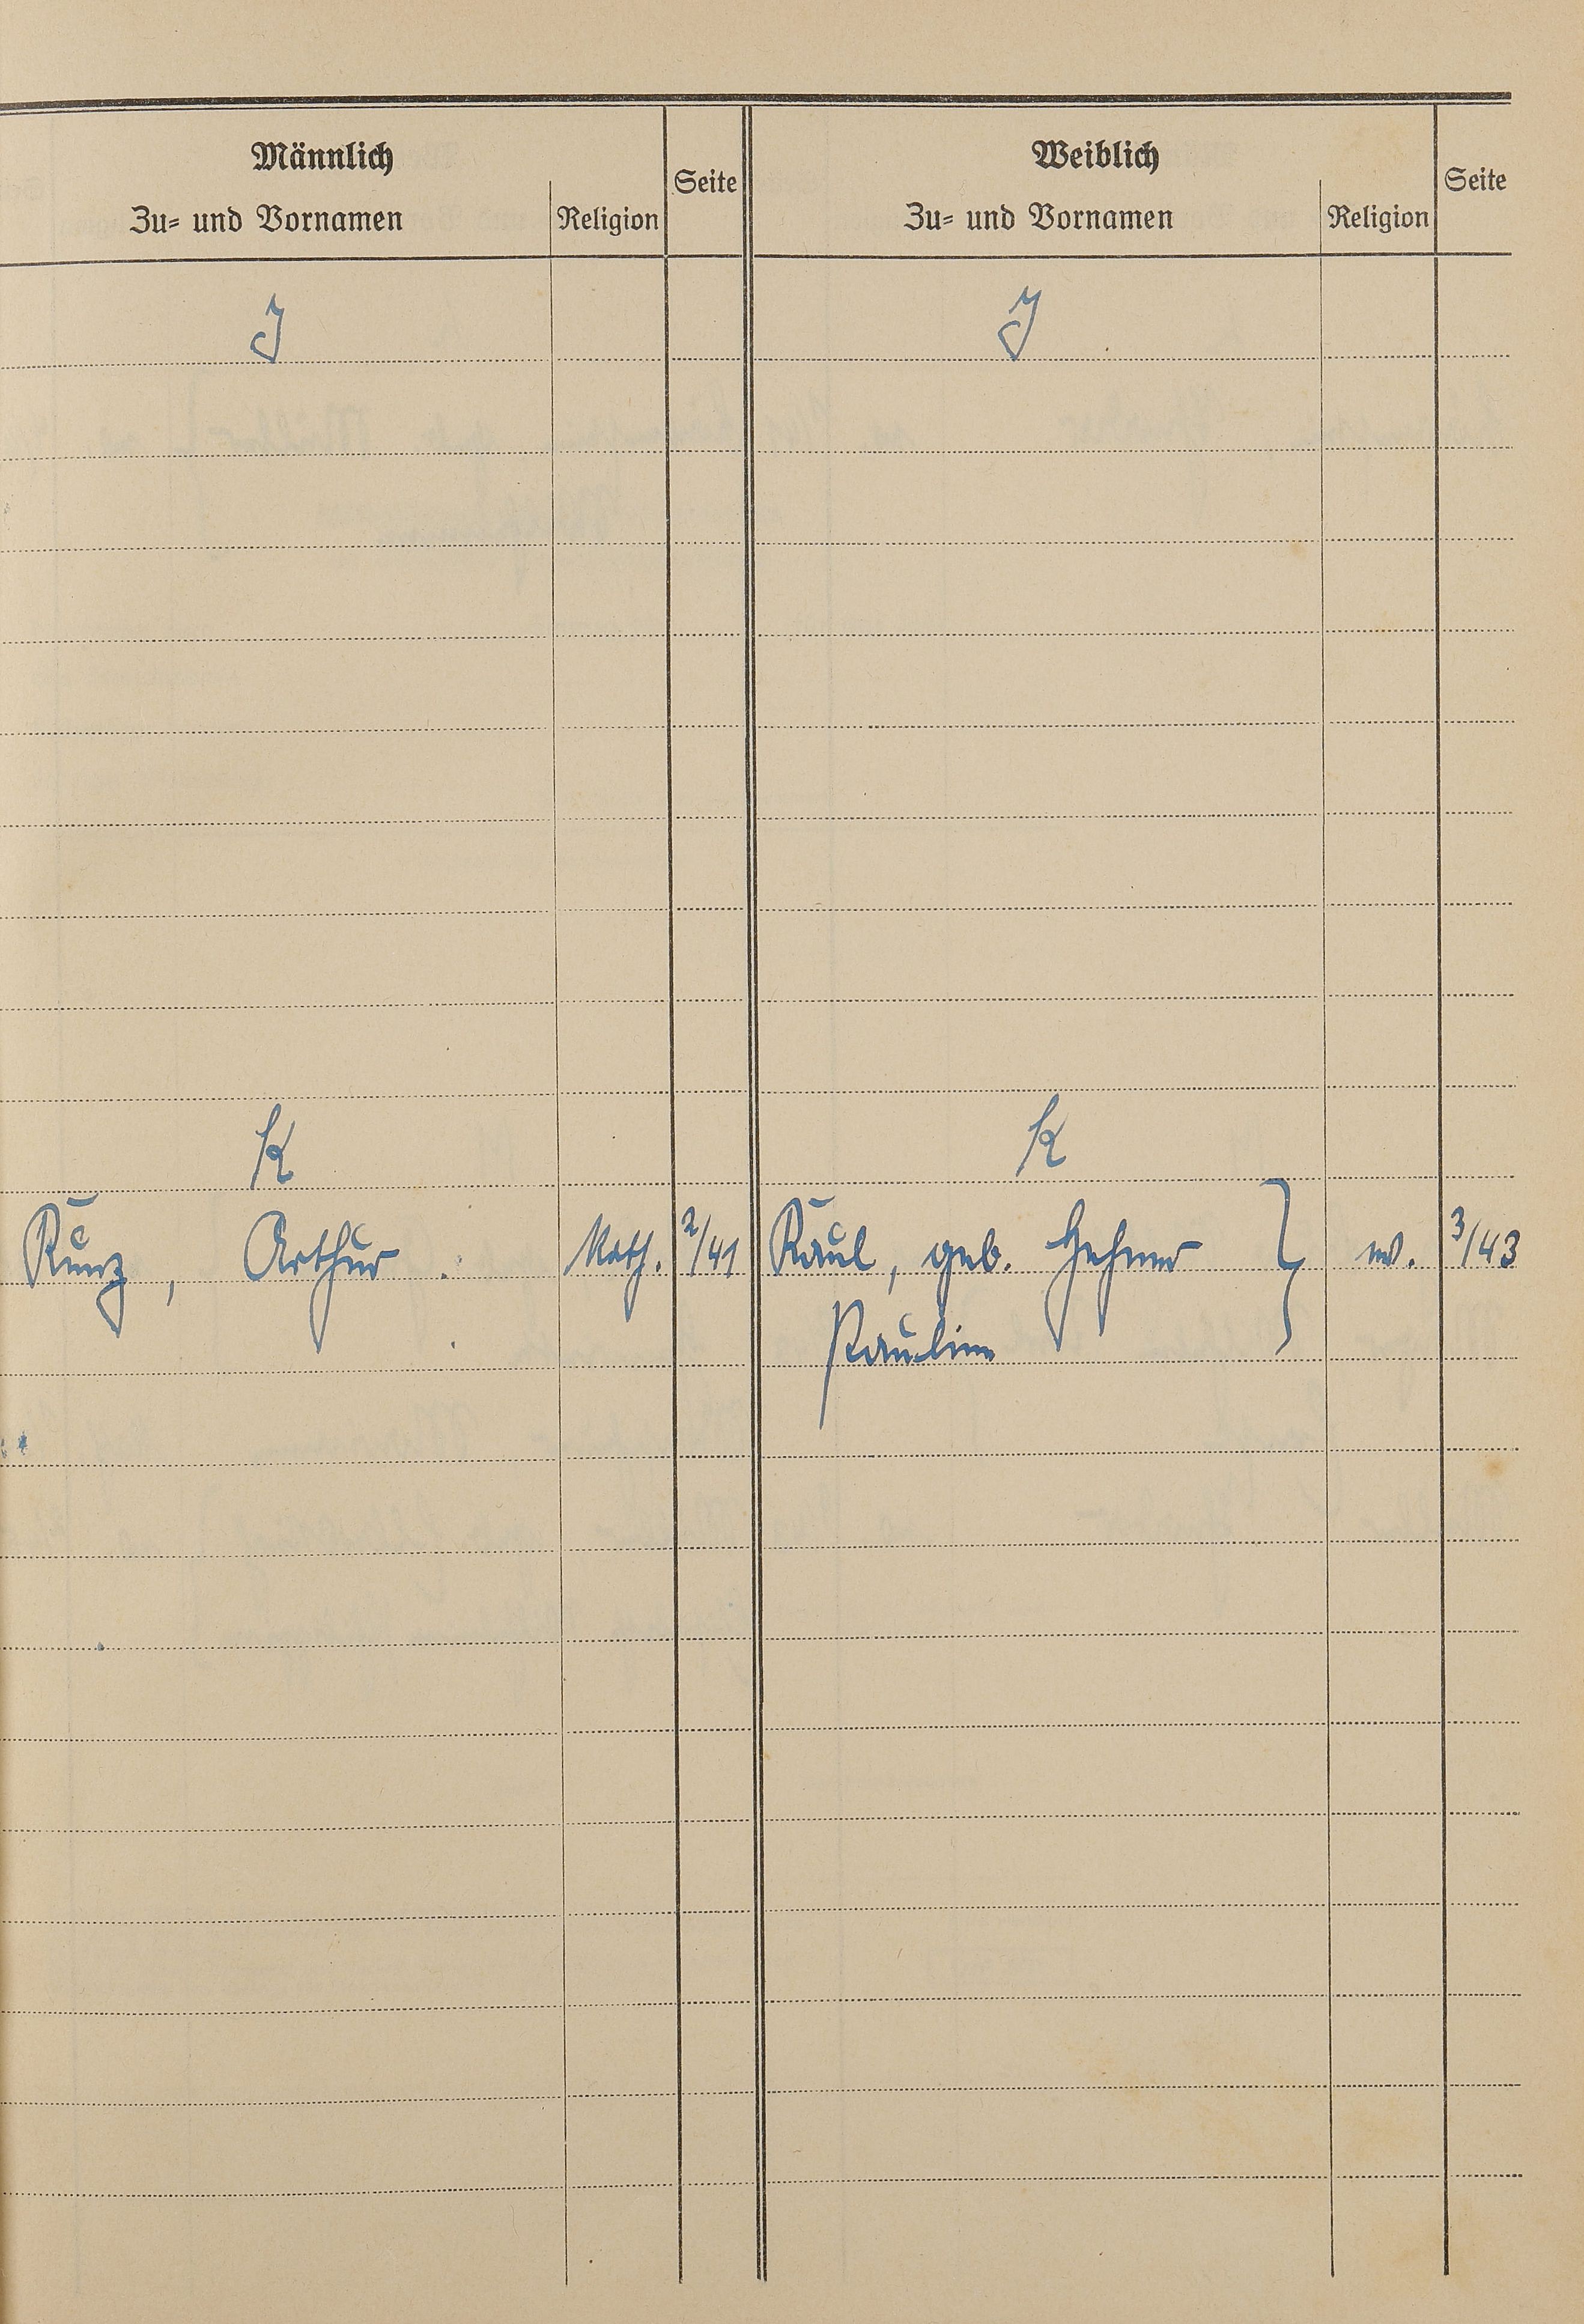 Männlich
Zu- und Vornamen
Religion
Seite
Weiblich
Zu- und Vornamen
Religion
Seite
J
J
K
K
Kunz, Arthur Kath. 2/41
Kaul, geb. ev. 3/43
Pauline